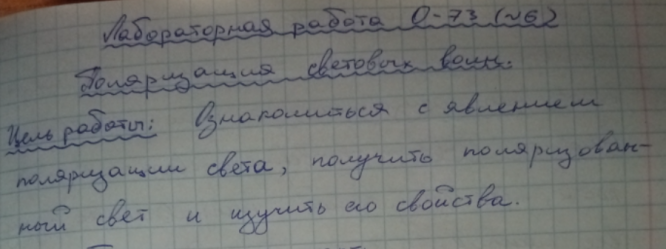 Лабораторная работа О-73 (№6)
Поляризация световых волн.
Цель работы: Ознакомиться с явлением
поляризации света, получить поляризован-
ный свет и изучить его свойства.